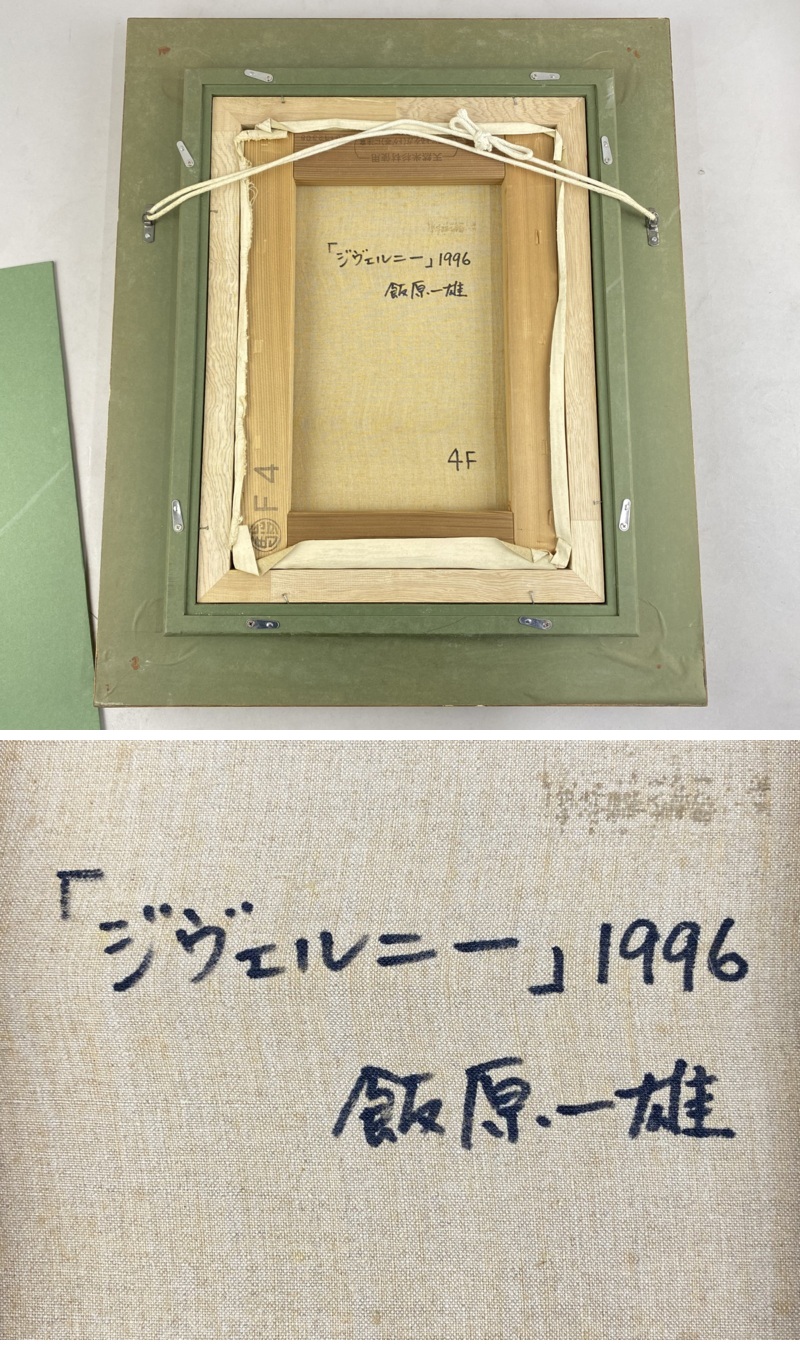 天然米杉材使用
「ジヴェルニー」1996
飯原一雄
4F
F4
「ジヴェルニー」1996
飯原一雄